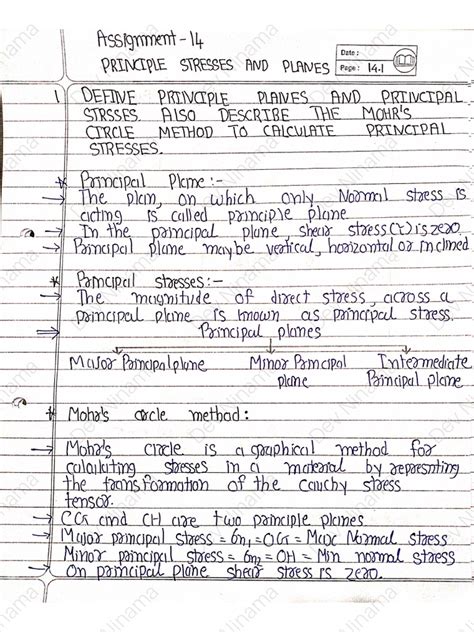 Assignment - 14
PRINCIPLE STRESSES AND PLANES
Date :
Page : 14.1
1 DEFINE PRINCIPLE PLANES AND PRINCIPAL
STRSSES. ALSO DESCRIBE THE MOHR'S
CIRCLE METHOD TO CALCULATE PRINCIPAL
STRESSES.
* Principal Plane :-
→ The plan, on which only Normal stress is
acting is called principle plane
→ In the principal plane, shear stress (τ) is zero.
→ Principal plane may be vertical, horizontal or inclined
* Principal stresses :-
→ The magnitude of direct stress, across a
principal plane is known as principal stress.
⇒ Principal planes
Major Principal plane Minor Principal Intermediate
plane Principal plane
* Mohr's circle method :
→ Mohr's circle is a graphical method for
calculating stresses in a material by represnting
the transformation of the Cauchy stress
tensor.
→ CG and CH are two principle planes
→ Major principal stress = σn₁ = OG = Max Normal stress
Minor principal stress = σn₂ = OH = Min normal stress
→ On principal plane shear stress is zero.
Dev Ninama